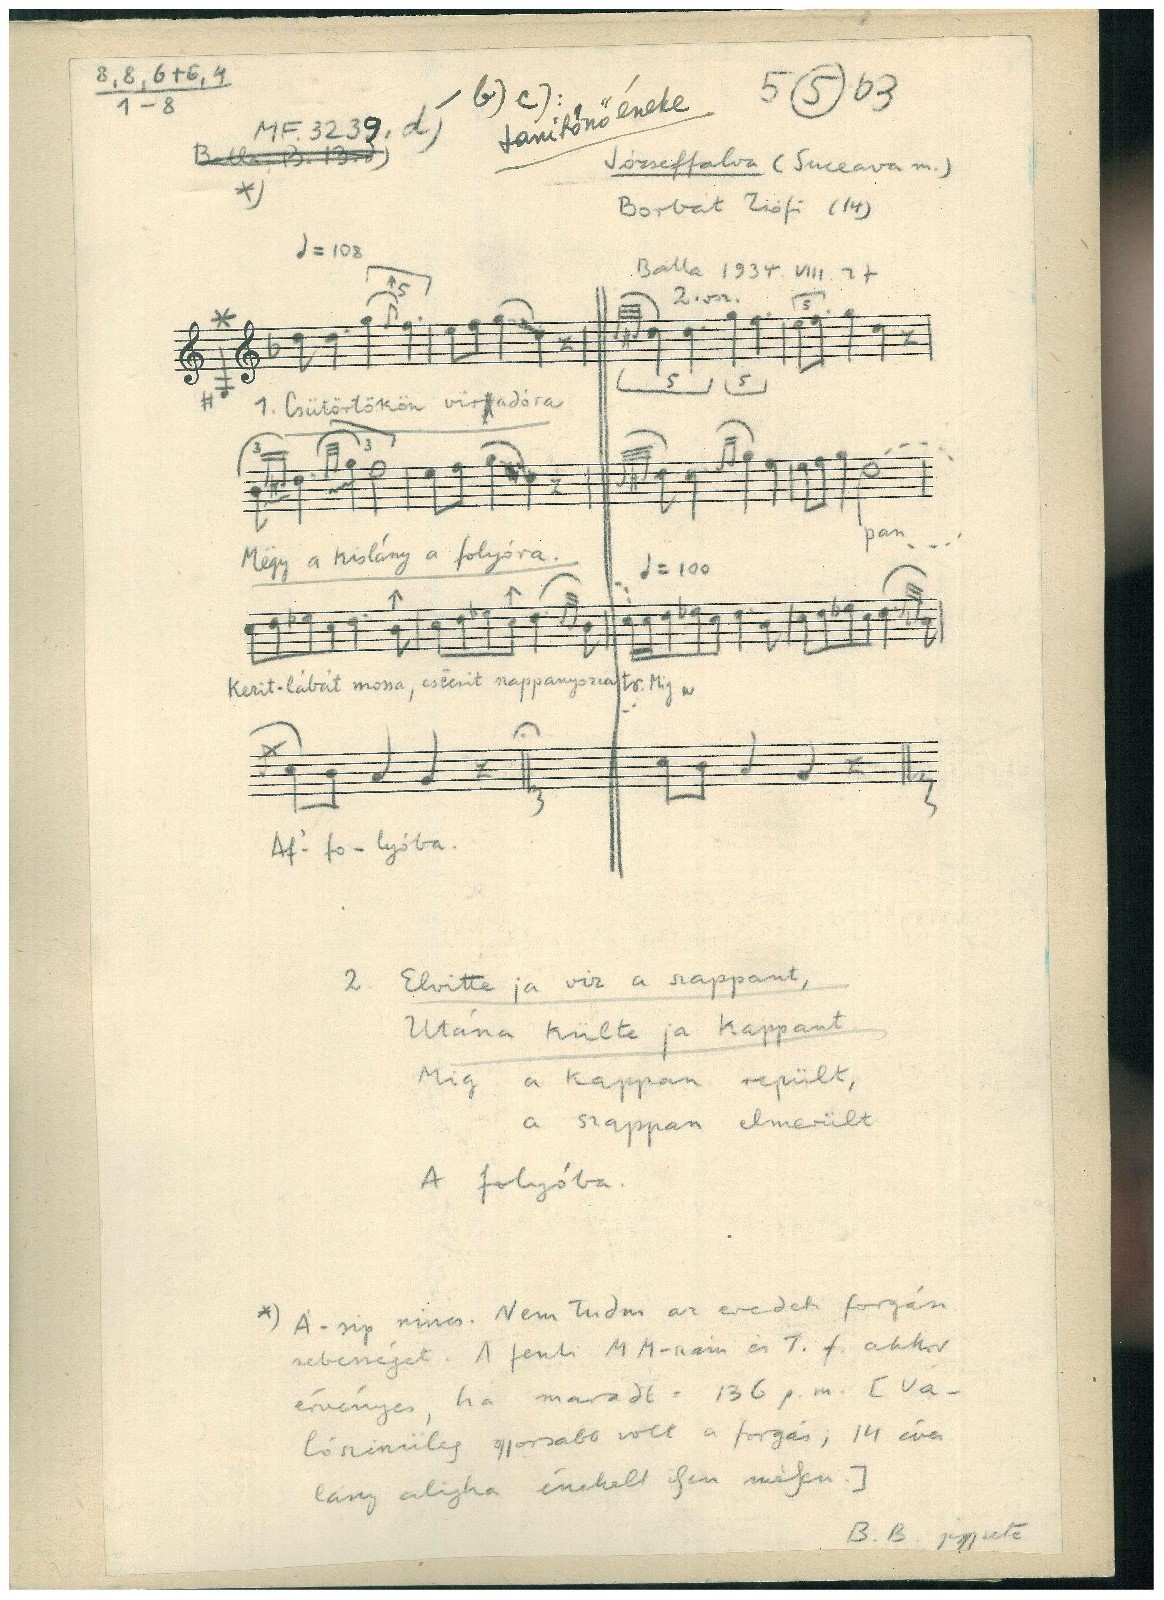 8, 8, 6+6, 4
1-8
MF. 3239. d) b) c):
tanítónő éneke
5 5 b3
*)
Józseffalva (Suceava m.)
Borbat Zsófi (14)
♩ = 108
Balla 1934. VIII. 27
2. vsz.
5
5
5
5
1. Csütörtökön virradóra
3
3
Mëgy a kislány a folyóra.
pan
♩ = 100
Kezit-lábát mossa,
Mig a
Af- fo - lyóba.
2 Elvitte ja viz a szappant,
Utána külte ja kappant
Mig a kappan repült,
a szappan elmerült
A folyóba.
*) A-sip nincs. Nem tudom az eredeti forgási
sebességet. A fenti MM-szám és T. f. akkor
érvényes, ha maradt = 136 p. m. [Va-
lószinüleg gyorsabb volt a forgás; 14 éves
lány aligha énekelt ilyen mélyen.]
B. B.